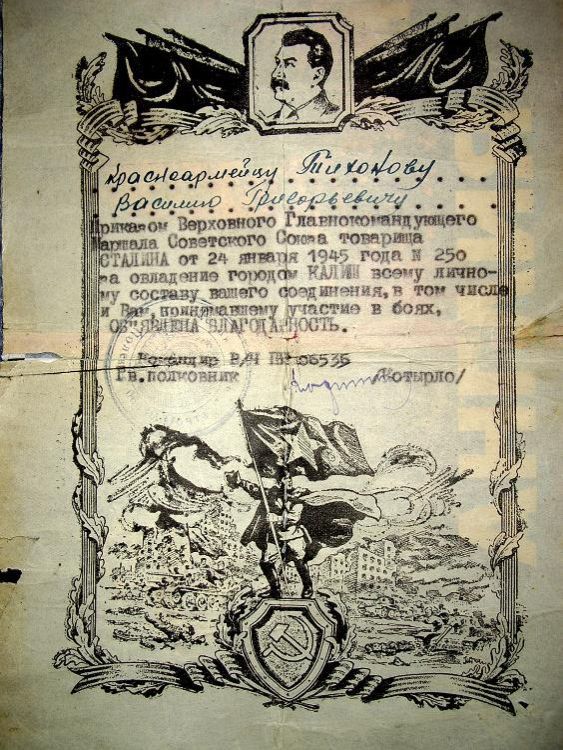 красноармейцу Тихонову
Василию Григорьевичу
Приказом Верховного Главнокомандующего
Маршала Советского Союза товарища
СТАЛИНА от 24 января 1945 года N 250
за овладение городом КАЛИШ всему лично-
му составу вашего соединения, в том числе
и Вам, принимавшему участие в боях,
ОБЪЯВЛЕНА БЛАГОДАРНОСТЬ.
Командир В/Ч ПП 06535
Гв. полковник /Котырло/